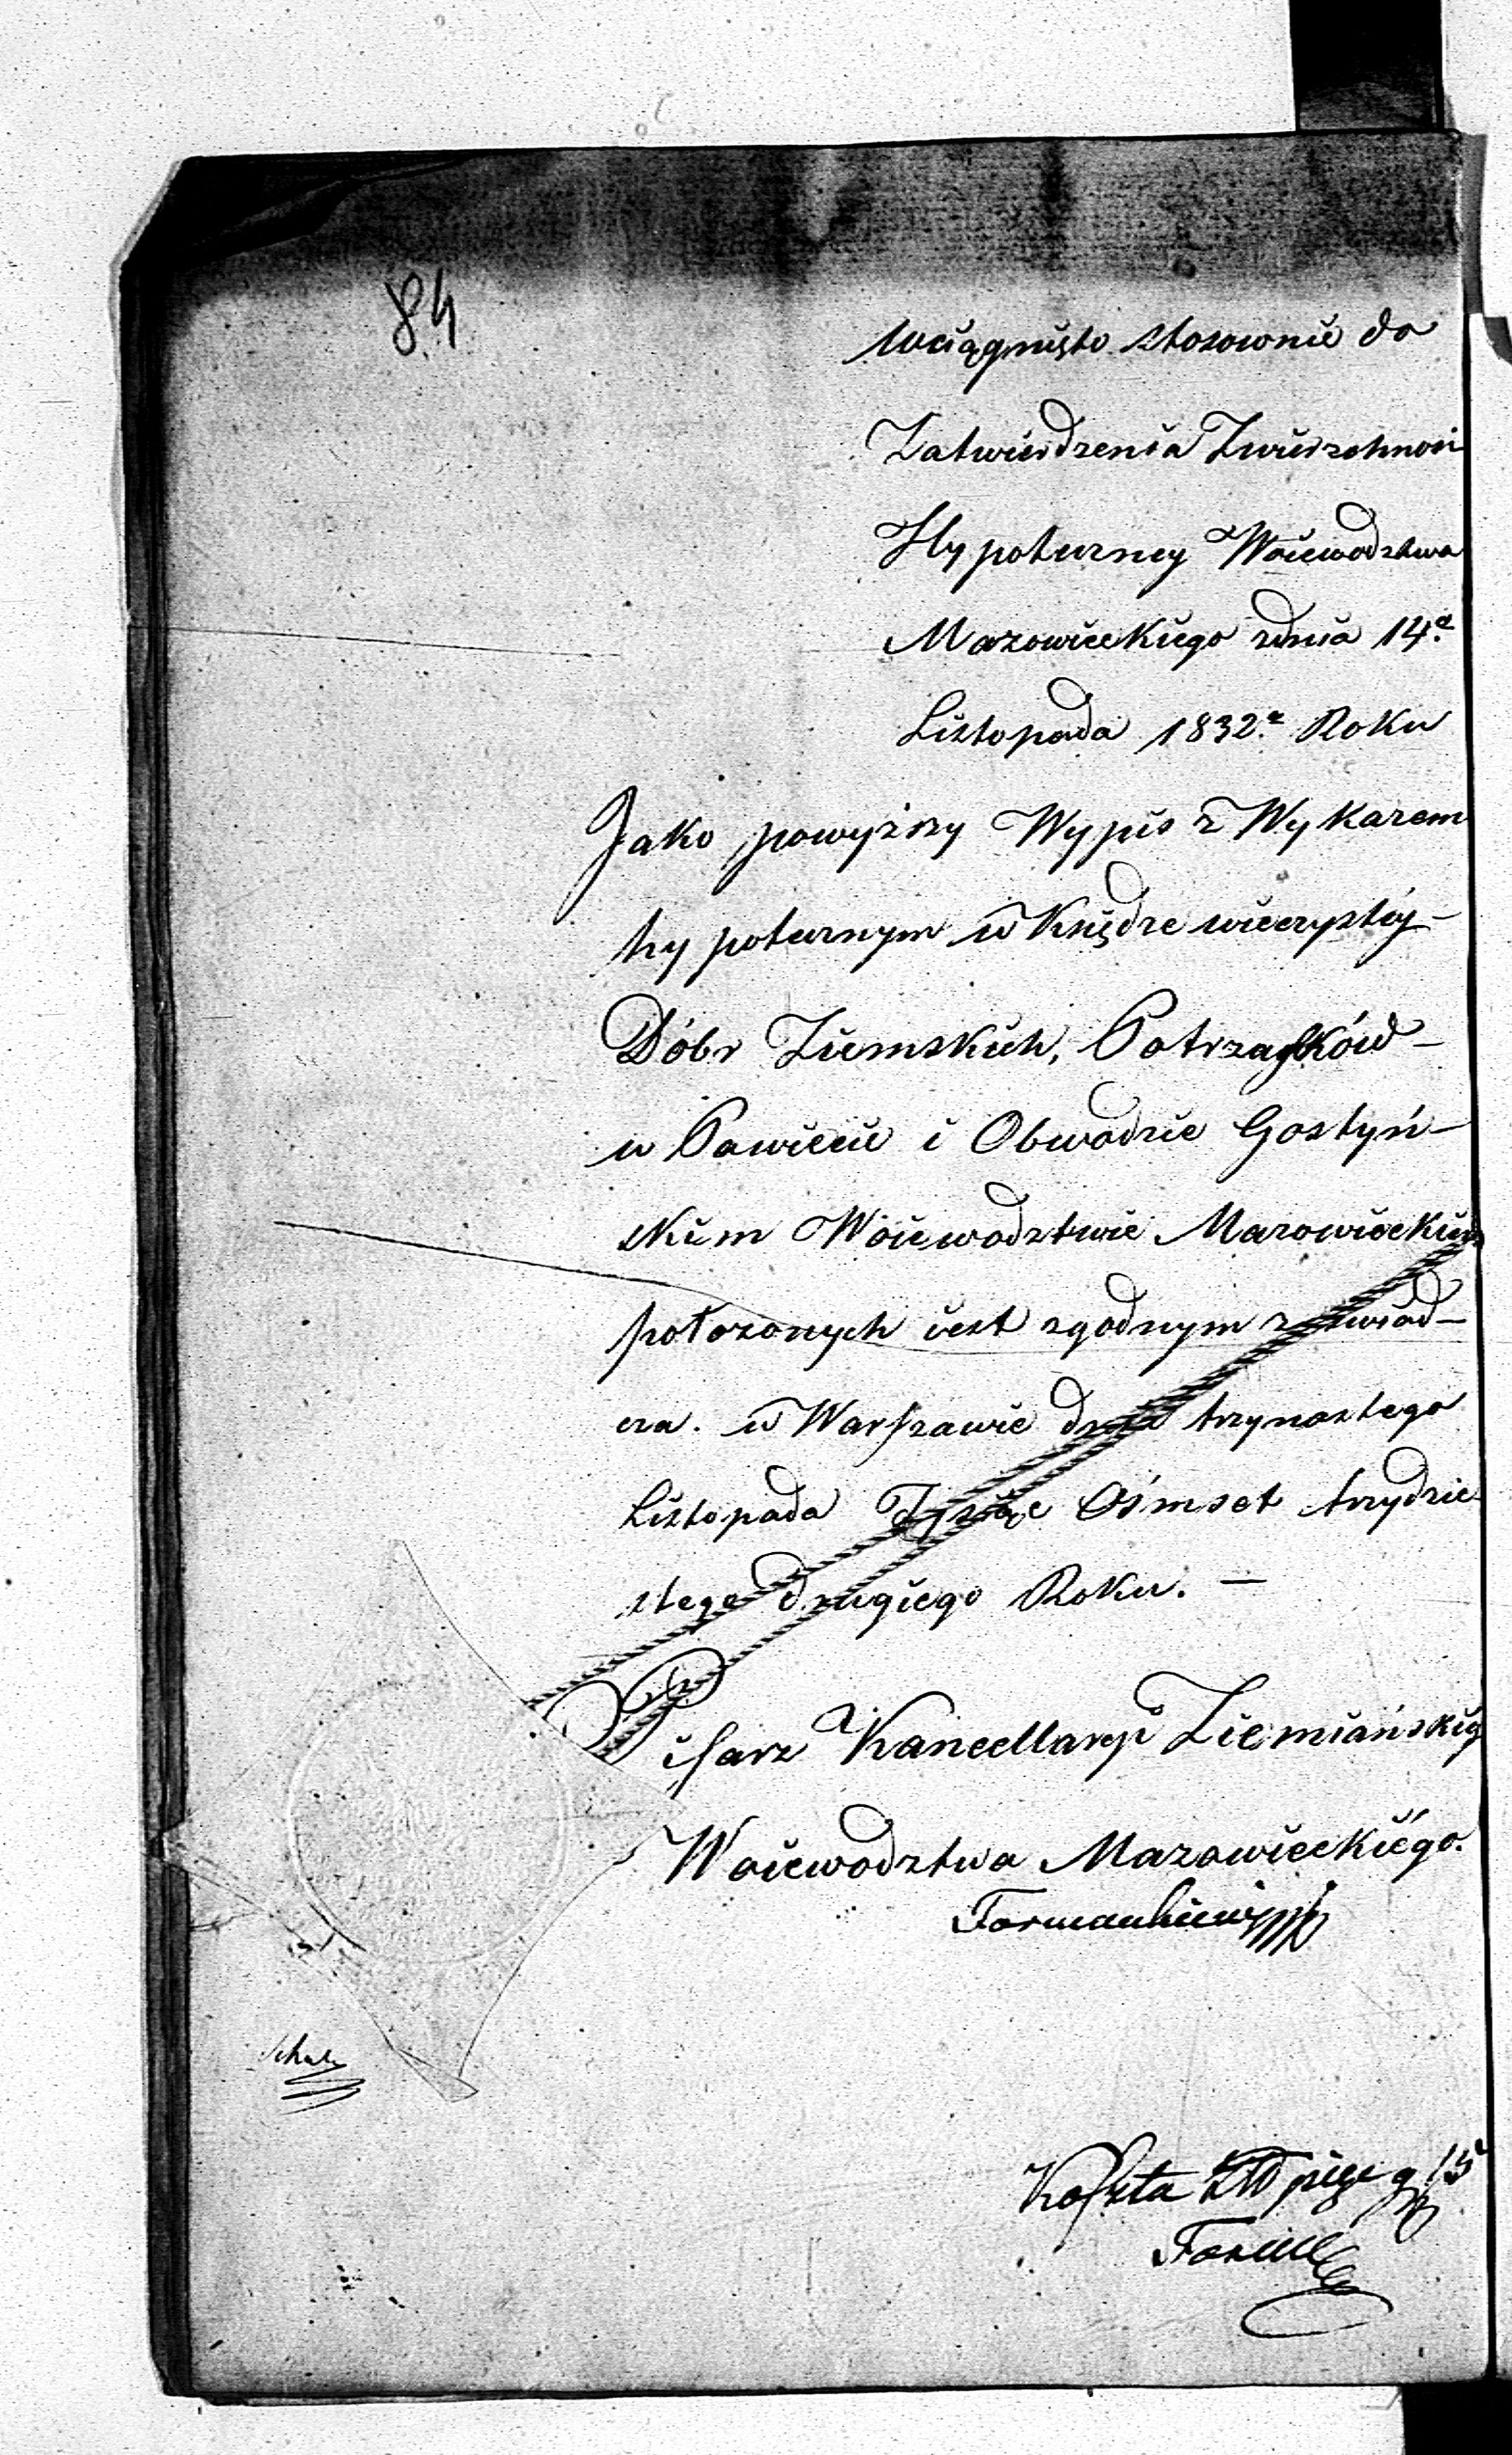 84
wciągnięto stosownie do
Zatwierdzenia Zwierzchnosci
Hypoteczney Woiewodztwa
Mazowieckiego zdnia 14.º
Listopada 1832.º Roku
Jako powyższy Wypis z Wykazem
hypotecznym w Księdze wieczystéy –
Dóbr Ziemskich, Potrzasków –
w Powiecie i Obwodzie Gostyń –
skim Woiewodztwie Mazowieckiem
położonych iest zgodnym zaświad –
cza. w Warszawie dnia trzynastego
Listopada Tysiąc Ośmset trzydzie
stego drugiego Roku. —
Pisarz Kancellaryi Ziemiańskiey
Woiewodztwa Mazowieckiégo.
Koszta Złł pięć g 15